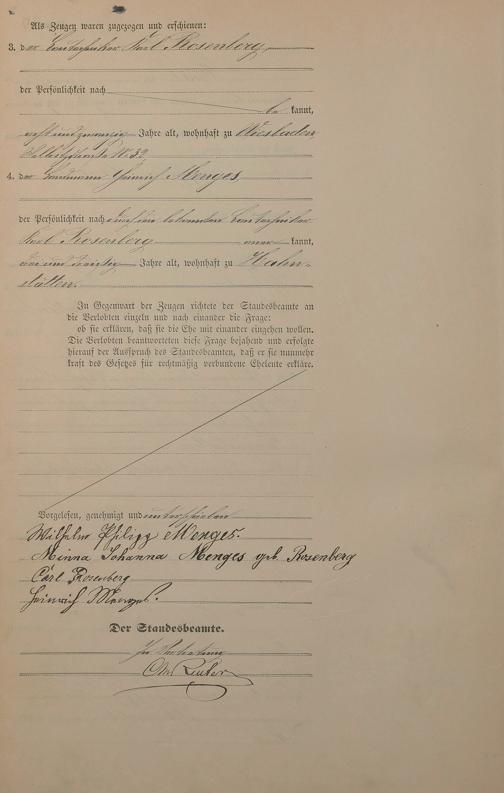 Als Zeugen waren zugezogen und erschienen:
3. der Bautechniker Karl Rosenberg
der Persönlichkeit nach
be kannt,
Jahre alt, wohnhaft zu Wiesbaden
4. der Heinrich Menges
der Persönlichkeit nach durch den bekannten Bautechniker
Karl Rosenberg aner kannt,
Jahre alt, wohnhaft zu Hahn-
stätten.
In Gegenwart der Zeugen richtete der Standesbeamte an
die Verlobten einzeln und nach einander die Frage:
ob sie erklären, daß sie die Ehe mit einander eingehen wollen.
Die Verlobten beantworteten diese Frage bejahend und erfolgte
hierauf der Ausspruch des Standesbeamten, daß er sie nunmehr
kraft des Gesetzes für rechtmäßig verbundene Eheleute erkläre.
Vorgelesen, genehmigt und unterschrieben
Wilhelm Philipp Menges.
Minna Johanna Menges geb. Rosenberg
Carl Rosenberg
Heinrich Menges.
Der Standesbeamte.
In Vertretung
Reuter